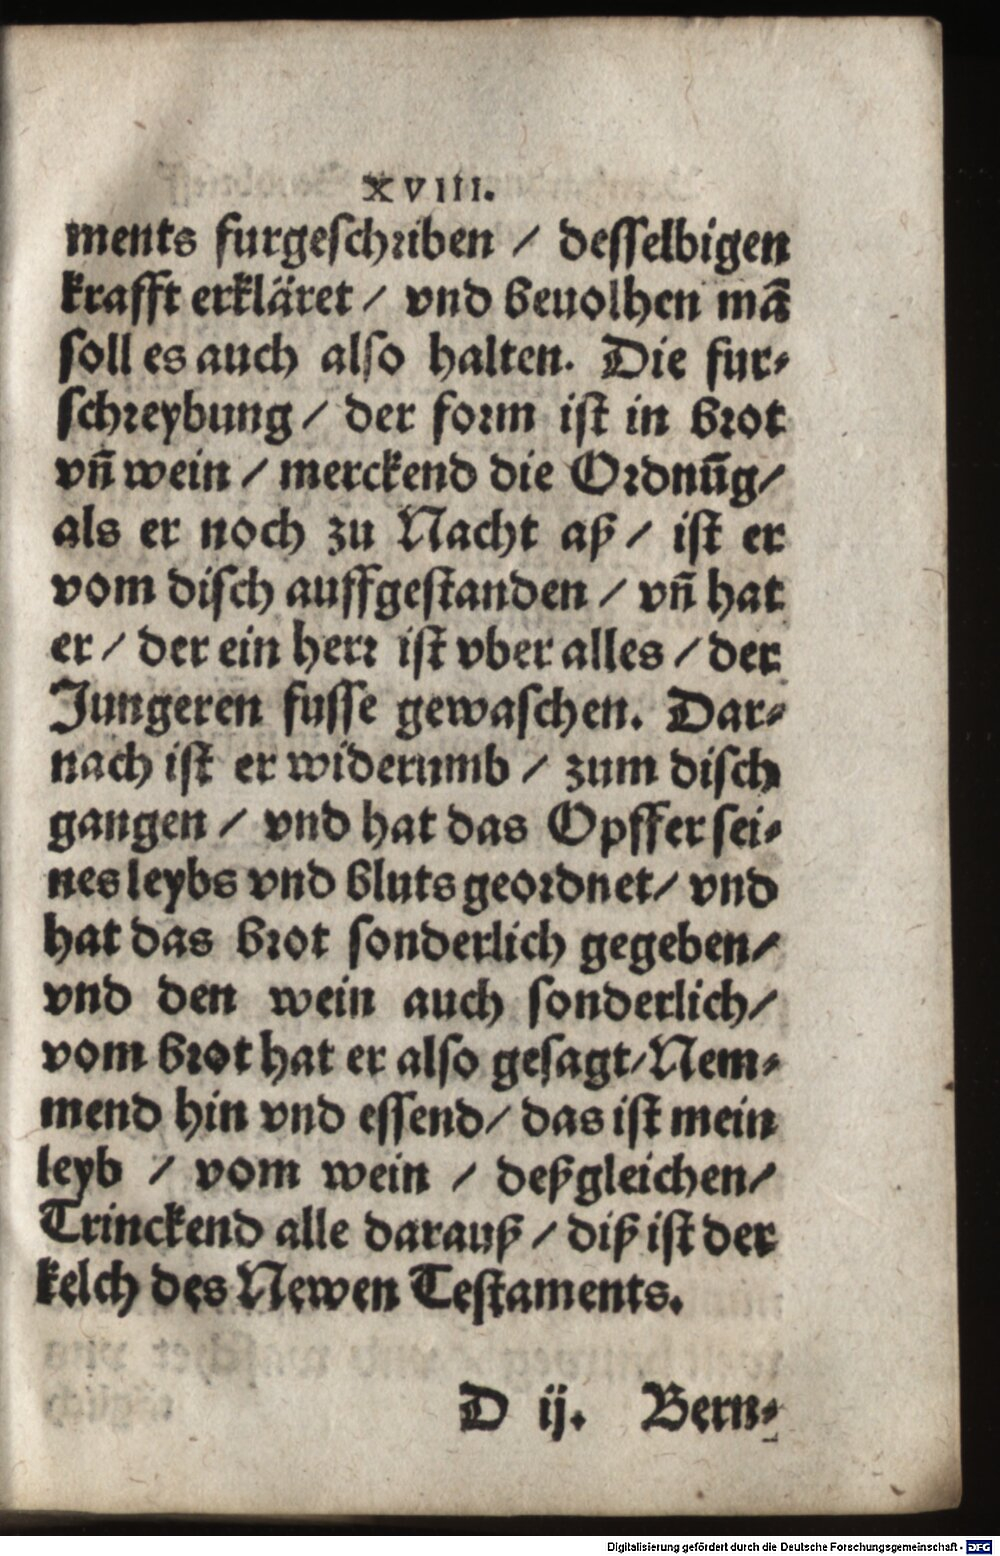 XVIII.
ments furgeschriben / desselbigen
krafft erkläret / vnd beuolhen mā
soll es auch also halten. Die fur⸗
schreybung / der form ist in brot
vn̄ wein / merckend die Ordnūg/
als er noch zu Nacht aß / ist er
vom disch auffgestanden / vn̄ hat
er / der ein herr ist vber alles / der
Jungeren fusse gewaschen. Dar⸗
nach ist er widerumb / zum disch
gangen / vnd hat das Opffer sei⸗
nes leybs vnd bluts geordnet/ vnd
hat das brot sonderlich gegeben/
vnd den wein auch sonderlich/
vom brot hat er also gesagt/Nem⸗
mend hin vnd essend/ das ist mein
leyb / vom wein / deßgleichen/
Trinckend alle darauß / diß ist der
kelch des Newen Testaments.
D ij. Bern⸗
Digitalisierung gefördert durch die Deutsche Forschungsgemeinschaft - DFG